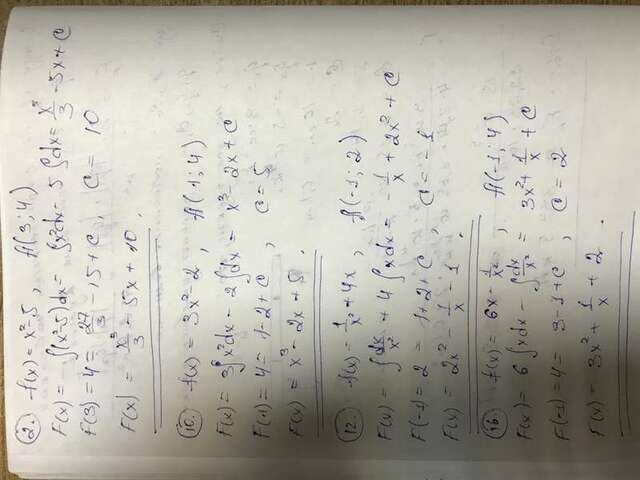 2. f(x) = x²-5, A(3; 4)
F(x) = ∫(x²-5)dx = ∫x²dx - 5∫dx = x³/3 - 5x + C
F(3) = 4 = 27/3 - 15 + C, C = 10
F(x) = x³/3 - 5x + 10.
10. f(x) = 3x²-2, A(1; 4)
F(x) = 3∫x²dx - 2∫dx = x³ - 2x + C
F(1) = 4 = 1-2+C, C = 5
F(x) = x³ - 2x + 5.
12. f(x) = 1/x² + 4x, A(-1; 2)
F(x) = ∫dx/x² + 4∫xdx = -1/x + 2x² + C
F(-1) = 2 = 1+2+C, C = -1
F(x) = 2x² - 1/x - 1.
16. f(x) = 6x - 1/x², A(-1; 4)
F(x) = 6∫xdx - ∫dx/x² = 3x² + 1/x + C
F(-1) = 4 = 3-1+C, C = 2
F(x) = 3x² + 1/x + 2.